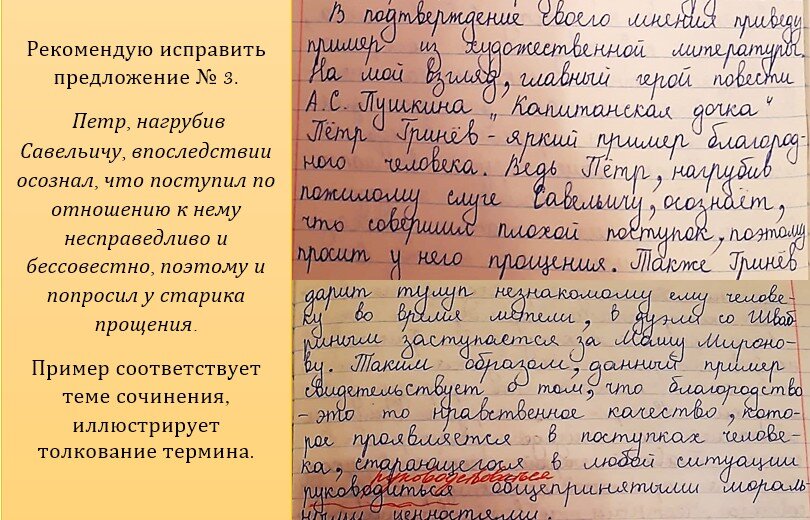 Рекомендую исправить
предложение № 3.
Петр, нагрубив
Савельичу, впоследствии
осознал, что поступил по
отношению к нему
несправедливо и
бессовестно, поэтому и
попросил у старика
прощения.
Пример соответствует
теме сочинения,
иллюстрирует
толкование термина.
В подтверждение своего мнения приведу
пример из художественной литературы.
На мой взгляд, главный герой повести
А.С. Пушкина „Капитанская дочка"
Пётр Гринёв - яркий пример благород-
ного человека. Ведь Пётр, нагрубив
пожилому слуге Савельичу, осознаёт,
что совершил плохой поступок, поэтому
просит у него прощения. Также Гринёв
дарит тулуп незнакомому ему челове-
ку во время метели, в дуэли со Шваб-
риным заступается за Машу Мироно-
ву. Таким образом, данный пример
свидетельствует о том, что благородство
- это то нравственное качество, кото-
рое проявляется в поступках челове-
ка, старающегося в любой ситуации
руководствоваться
руководиться общепринятыми мораль-
ными ценностями.